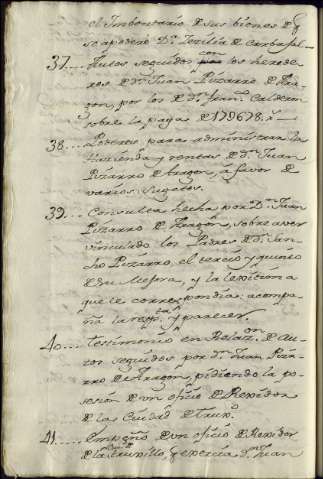 el Imbentario de sus bienes de q.
se apoderó D.ª Zezilia de Carbajal.
37.... Autos seguidos con los herede-
ros de D.n Juan Pizarro de Ara-
gon, por los de D.n Juan Calderon
sobre la paga de
38.... Poderes para administrar la
Hacienda y rentas de D.n Juan
Pizarro de Aragon, á favor de
varios Sugetos.
39.... Consulta hecha por D.n Juan
Pizarro de Aragon, sobre aver
vinculado los Padres de D.n San-
cho Pizarro, el tercio y quinto
de su Mejora, y la lexitima
que le correspondia: acompa-
ña la resp.ta y parecer.
40.... Testimonio en Relaz.on de Au-
tos seguidos por D.n Juan Piza-
rro de Aragon, pidiendo la po-
sesion de un oficio de Rexidor
de la Ciudad de Trux.o
41.... Empeño de un oficio de Rexidor
de Truxillo, q exercia D.n Juan